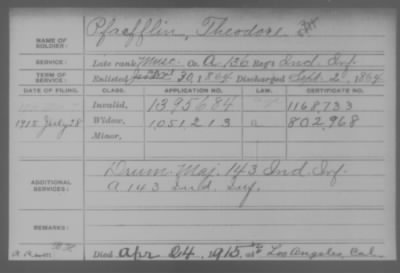 NAME OF SOLDIER: Pfaefflin, Theodore
SERVICE: Late rank, Musc. Co. A, 136 Reg't Ind. Inf.
TERM OF SERVICE: Enlisted 30, 1864 Discharged Sept. 2, 1864
DATE OF FILING. CLASS. APPLICATION NO. LAW. CERTIFICATE NO.
Invalid, 1395684 1168,733
1915 July 28 Widow, 1051213 a 802,968
Minor,
ADDITIONAL SERVICES: Drum Maj. 143 Ind. Inf.
A 143 Ind. Inf.
REMARKS:
Died Apr. 24, 1915, at Los Angeles, Cal.